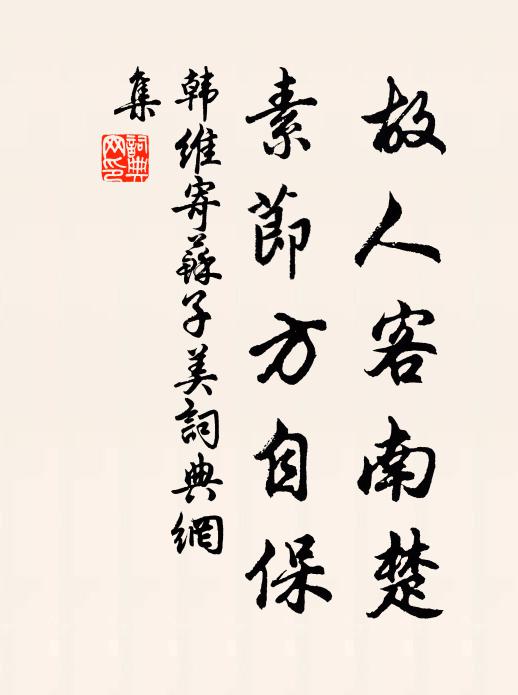 故人客南楚
素節方自保
韩維寄蘇子美詞典網
集
詞典
网印